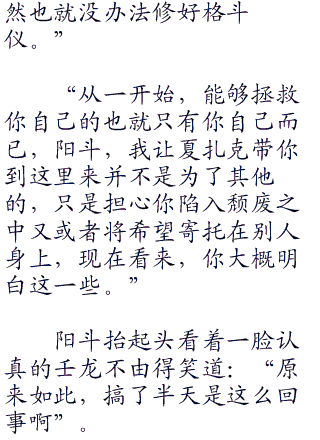 然也就没办法修好格斗
仪。”
“从一开始，能够拯救
你自己的也就只有你自己而
已，阳斗，我让夏扎克带你
到这里来并不是为了其他
的，只是担心你陷入颓废之
中又或者将希望寄托在别人
身上，现在看来，你大概明
白这一些。”
阳斗抬起头看着一脸认
真的壬龙不由得笑道：“原
来如此，搞了半天是这么回
事啊”。